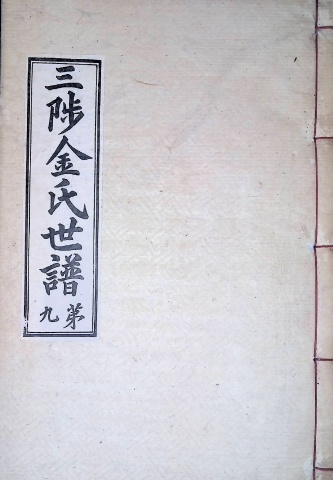 三陟金氏世譜
第九